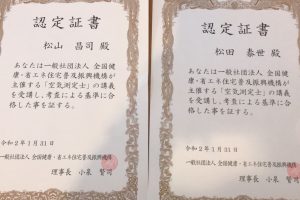 認定証書
松山 昌司 殿
あなたは一般社団法人 全国健
康・省エネ住宅普及振興機構が
主催する「空気測定士」の講義
を受講し、考査による基準に合
格した事を証する。
令和2年1月31日
一般社団法人 全国健康・省エネ住宅普及振興機構
理事長 小泉 賢司
認定証書
松田 泰世 殿
あなたは一般社団法人 全国健
康・省エネ住宅普及振興機構が
主催する「空気測定士」の講義
を受講し、考査による基準に合
格した事を証する。
令和2年1月31日
一般社団法人 全国健康・省エネ住宅普及振興機構
理事長 小泉 賢司